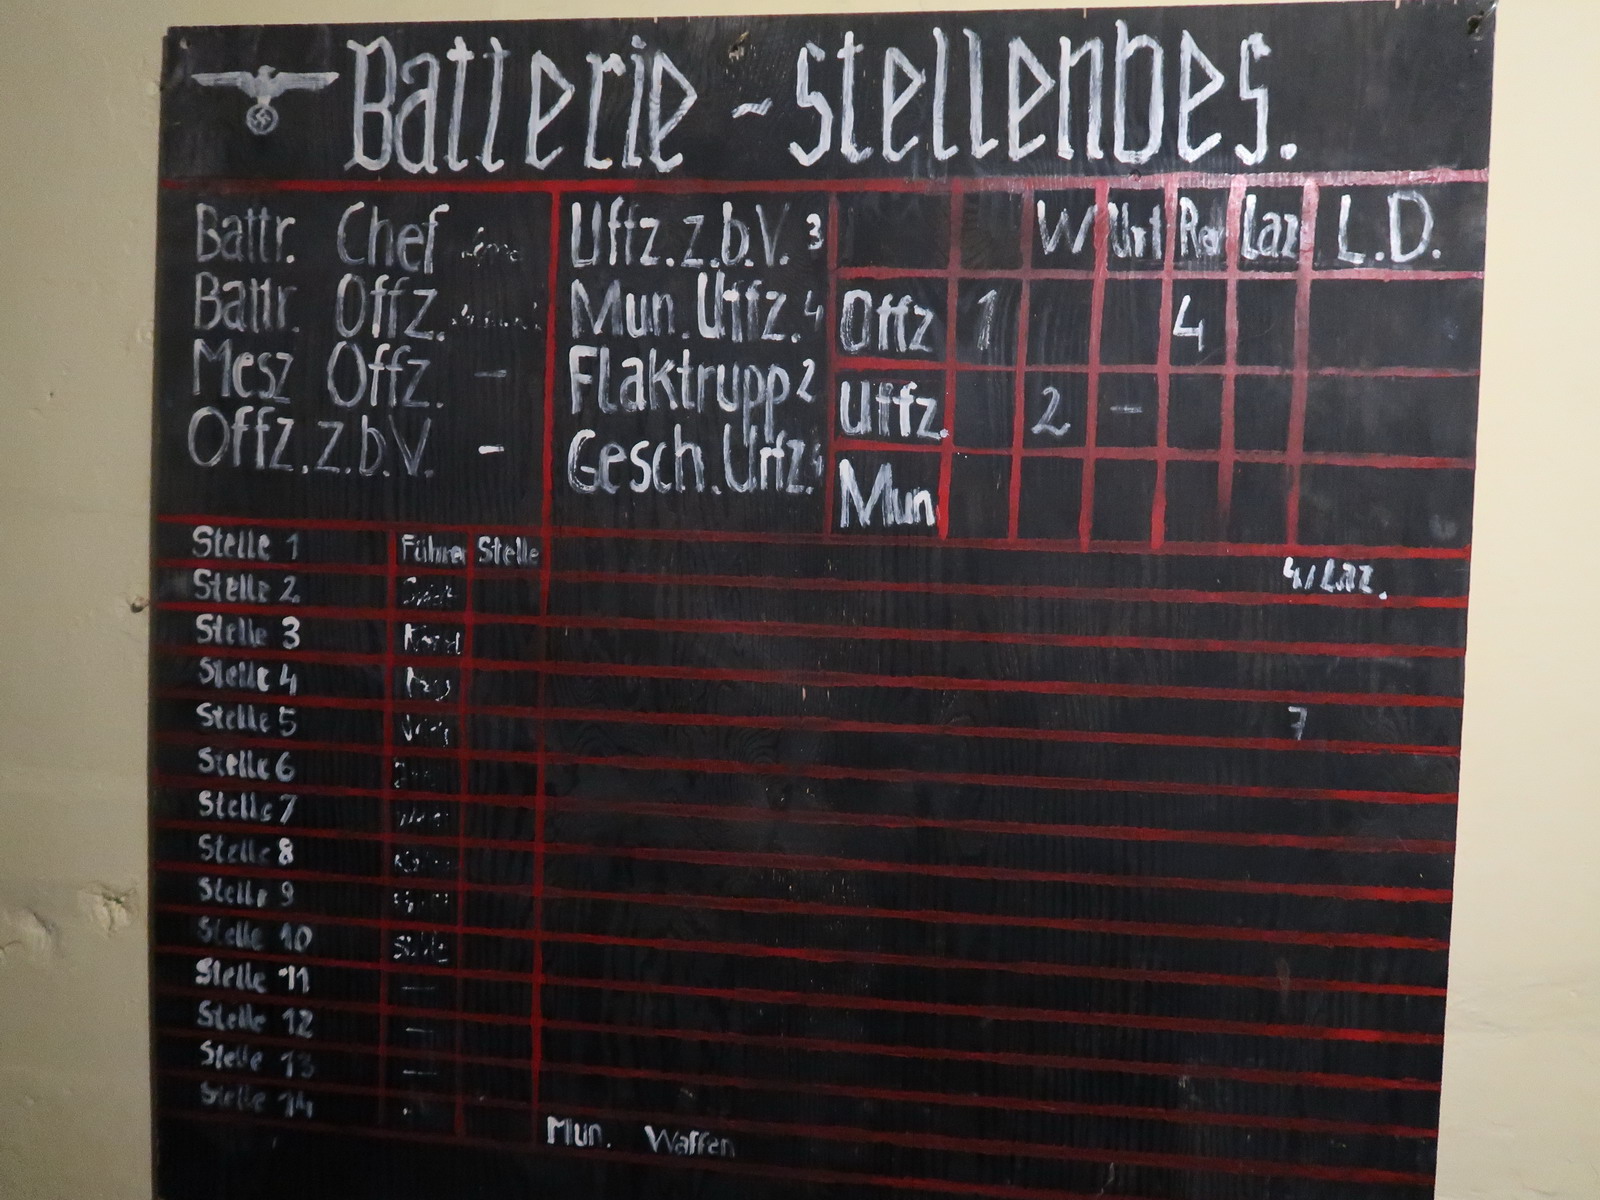 Batterie - Stellenbes.
Battr. Chef
Battr. Offz.
Mesz Offz. -
Offz.z.b.V. -
Uffz.z.b.V. 3
Mun.Uffz. 4
Flaktrupp 2
Gesch.Uffz.
W Urt Laz L.D.
Offz 1 4
Uffz. 2 -
Mun
Stelle 1 Führer Stelle
4/Laz.
Stelle 2
Stelle 3
Stelle 4
Stelle 5
7
Stelle 6
Stelle 7
Stelle 8
Stelle 9
Stelle 10
Stelle 11 -
Stelle 12 -
Stelle 13 -
Stelle 14
Mun. Waffen